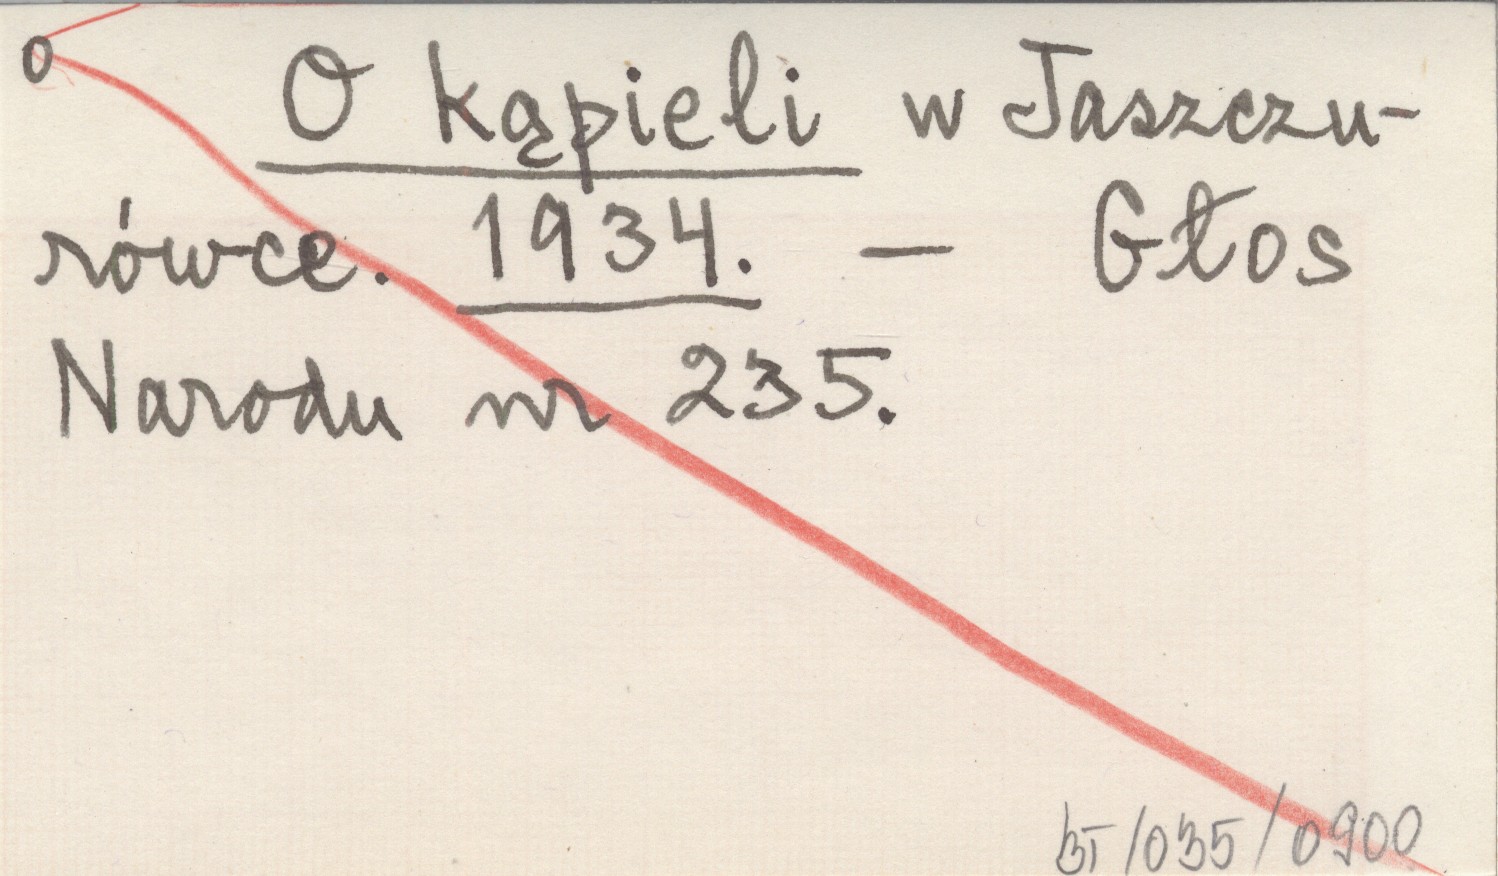 O
O kąpieli w Jaszczu-
rówce. 1934. — Głos
Narodu nr 235.
BT/035/0900